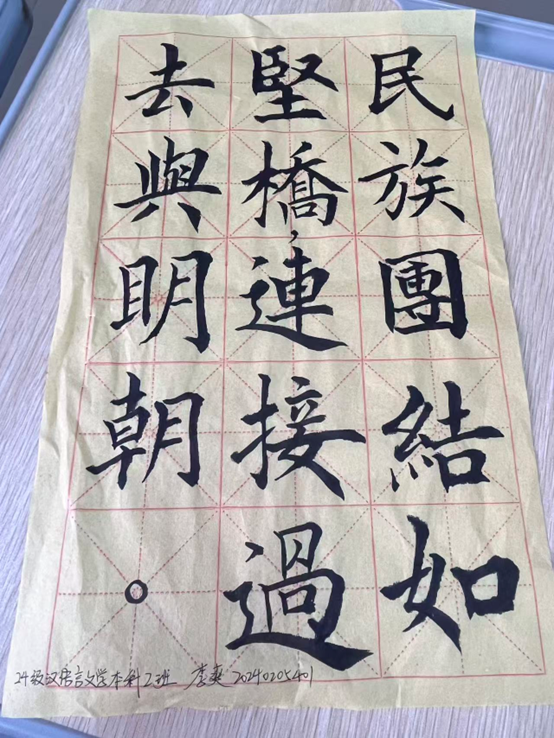 民族團結如
堅橋,連接過
去與明朝
。
24级汉语言文学本科2班 李爽 20240205401